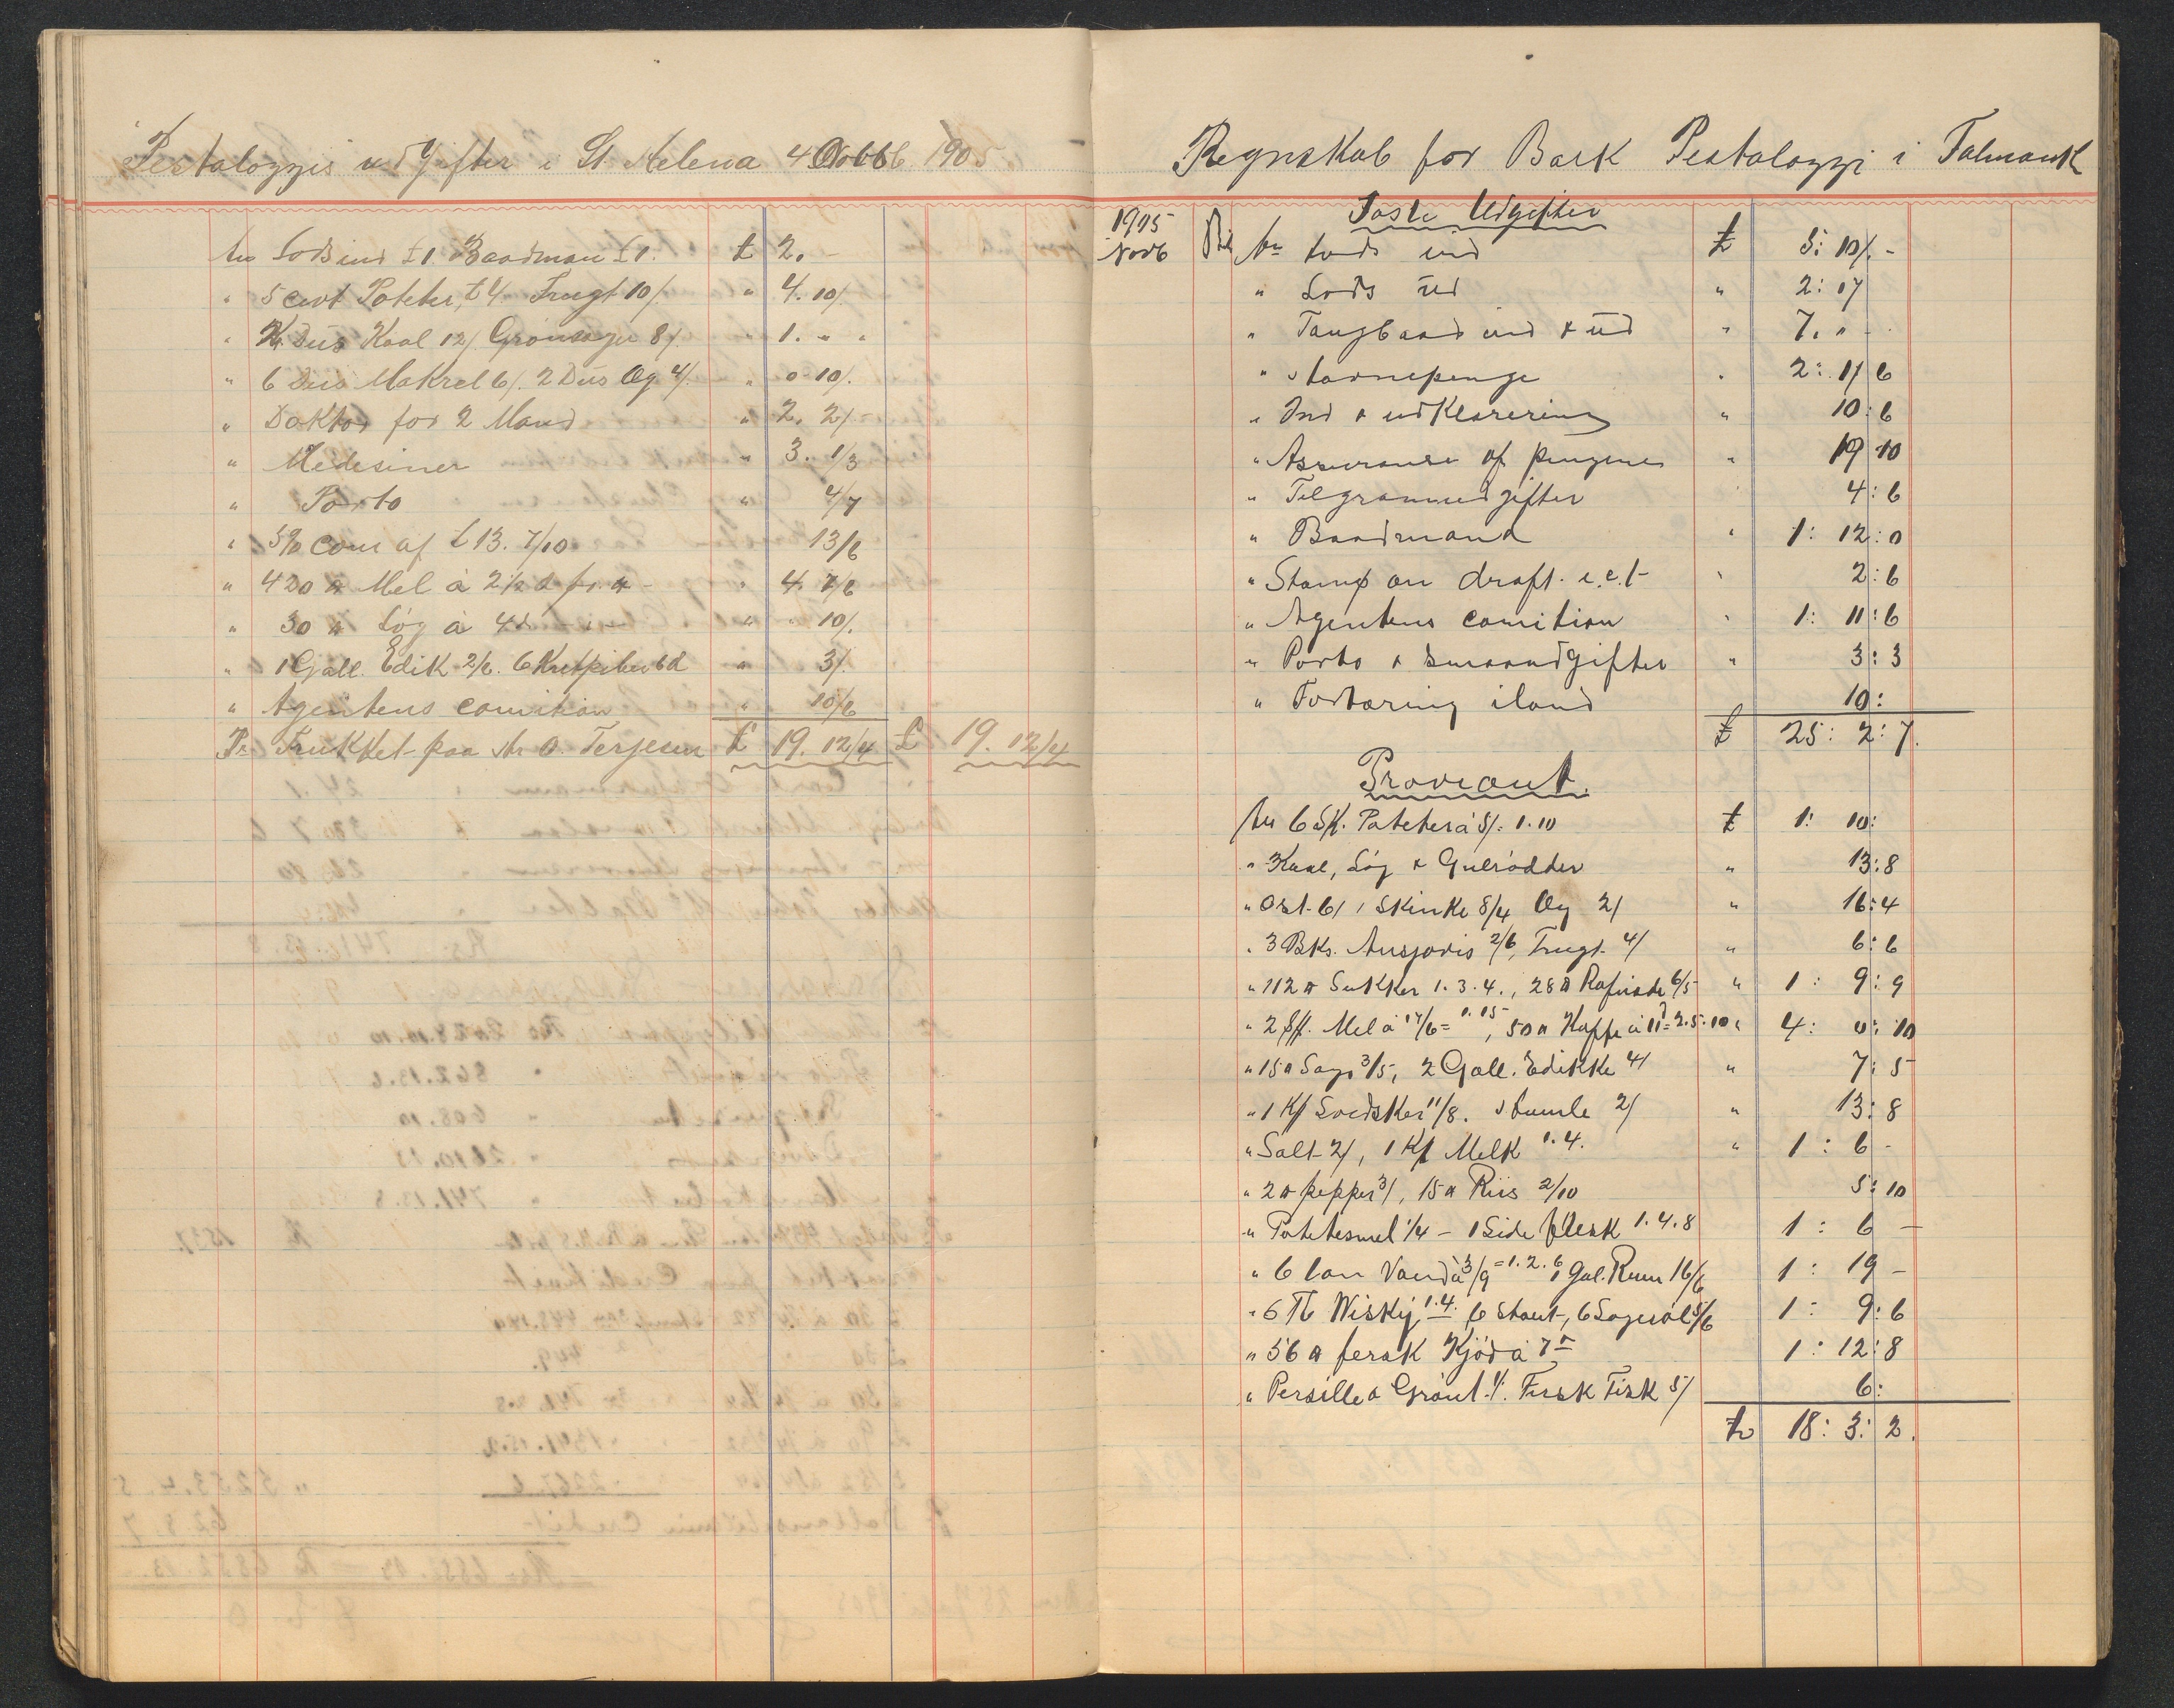 Pestalozzis udgifter i St. Helena 4 Novbb 1905
An Lods ind £1. Baadman £1. £ 2. -
" 5 cwt Poteter, £4. Frugt 10/. " 4. 10/.
" Dus Kaal 12/ Grönsager 8/ " 1. " "
" 6 Dus Makrel 6/. 2 Dus Æg 4/. " 0-10/.
" Doktor for 2 Mand " 2. 2/-
" Medesiner " 3. 1/3
" Porto " 4/7
" 5% Com af £13. 7/10 13/6
" 420 lb Mel à 2½ d pr. lb - " 4. 7/6
" 30 lb Løg à 4d - " " 10/.
" 1 Gall. Edik 2/6. 6d " 3/.
" Agentens comition " 10/6
Pr. Trukket paa Mr. O. Terjesen £ 19. 12/4 £ 19. 12/4
Regnskab for Bark Pestalozzi i Falmouth
Faste Udgifter
1905
Novb An Lods ind £ 5: 10/. -
" Lods ud " 2: 17
" Taugbaad ind & ud " 7. " -
" Havnepenge " 2: 11 6
" Ind & udklarering " 10: 6
" Assuranse af pengene " 19 10
" Telgramudgifter " 4: 6
" Baadmand " 1: 12: 0
" Stamp on draft. e.c.t- " 2: 6
" Agentens comition " 1: 11: 6
" Porto & smaaudgifter " 3: 3
" Fortæring iland 10:
£ 25: 2: 7.
Proviant.
An 6 Sk. Poteter à 5/: 1.10 £ 1: 10:
" Kaal, Løg & Gulrødder " 13: 8
" Ost 6/ 1 Skinke 8/4 Æg 2/ " 16: 4
" 3 Bks. Ansjovis 2/6, Frugt 4/ " 6: 6
" 112 lb Sukker 1.3.4., 28 lb Rafinade 6/5 " 1: 9: 9
" 2 Sk. Mel à 17/6 = 1.15-, 50 lb Kaffe à 11d = 2.5.10 " 4: 0: 10
" 15 lb Sago 3/5, 2 Gall. Edikke 4/ " 7: 5
" 1 Ks Svedsker 11/8. Humle 2/ " 13: 8
" Salt 2/, 1 Ks Melk 1.4. " 1: 6 -
" 2 lb pepper 3/, 15 lb Riis 2/10 5: 10
" Potetesmel 1/4 - 1 Side flesk 1.4.8 1: 6 -
" 6 Ton Vand à 3/9 = 1.2.6, 1 Gal. Rum 16/6 1: 19 -
" 6 Fl Wisky 1.4. 6 Stout, 6 Lagerøl 5/6 1: 9: 6
" 56 lb fersk Kjöd à 7d 1: 12: 8
" Persille & Grönt 1/. Fersk Fisk 5/ 6:
£ 18: 3: 2.